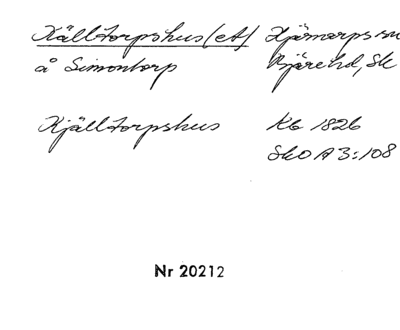 Källtorpshus (et) Hjärnarps sn
å Simontorp Bjäre hd, Sk
Kjälltorpshus Kb 1826
SkO A 3:108
Nr 20212